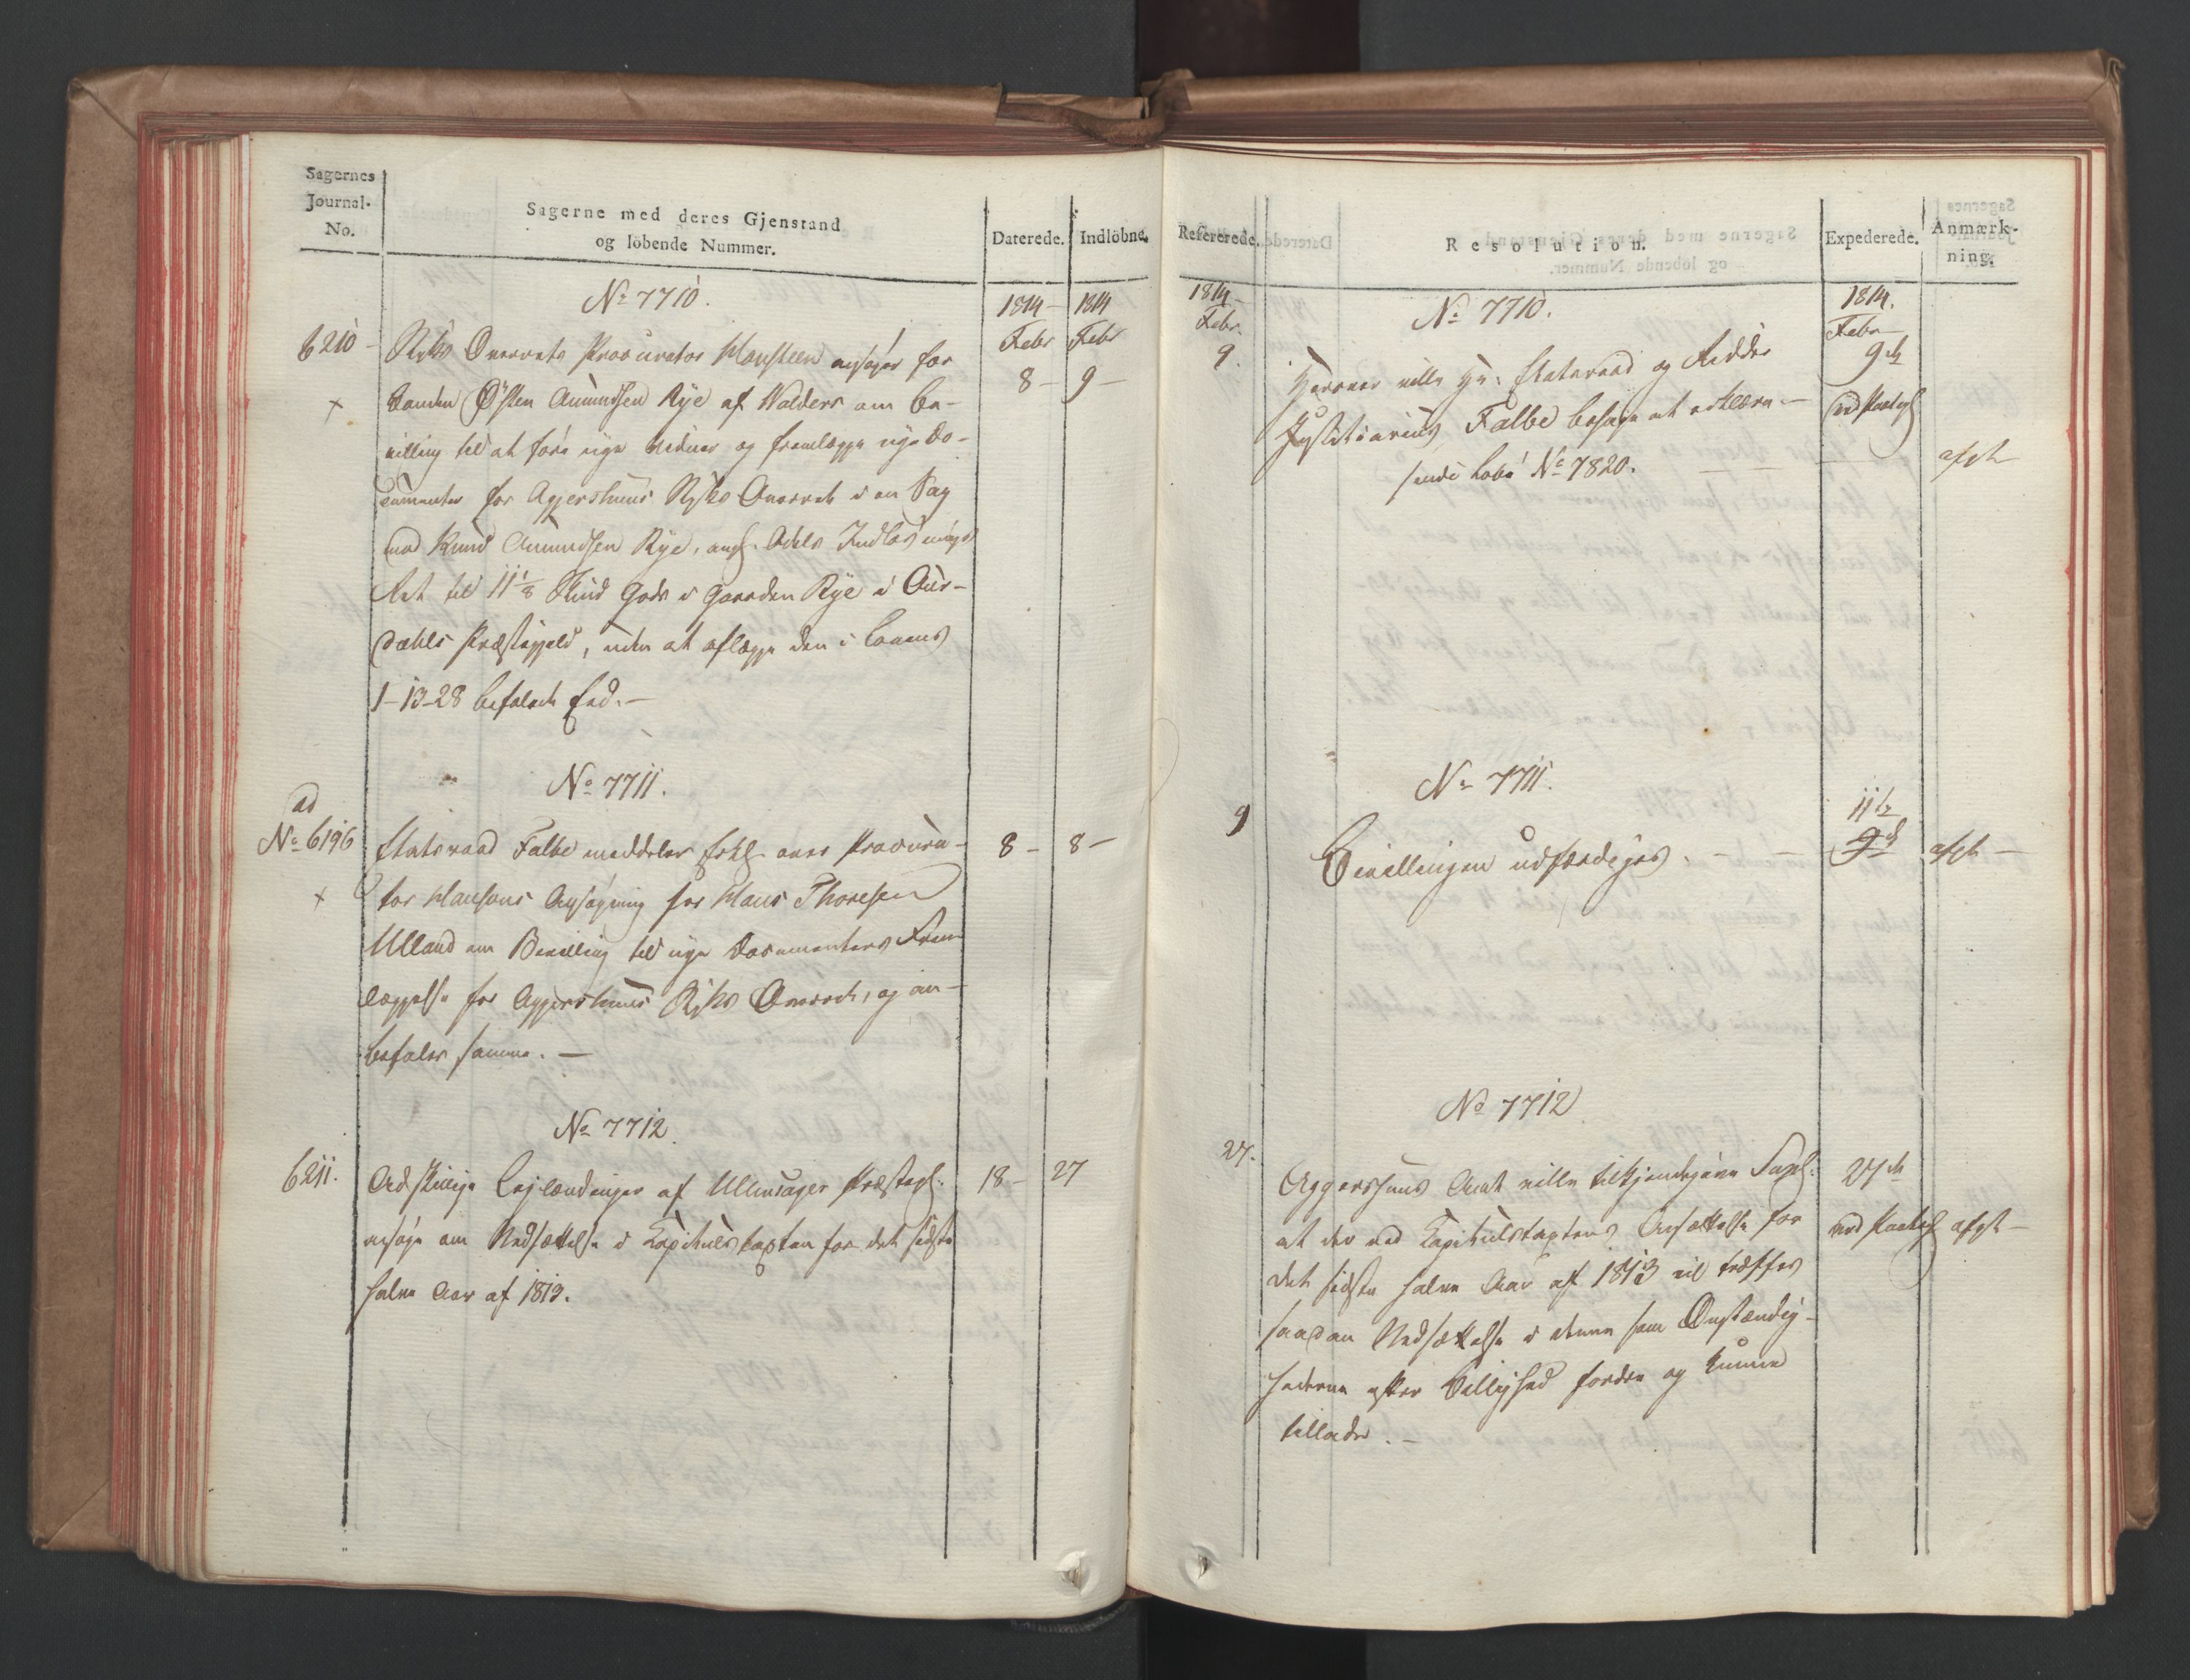 Sagernes
Journal-
No.
Sagerne med deres Gjenstand
og löbende Nummer.
Daterede.
Indlöbne.
No 7710.
1814
Febr
8 -
1814
Febr
9 -
6210 -
+
Stifts Overrets Procurator Mansteen ansøger for
Bonden Østen Amundsen Rye af Walders om Be-
villing til at føre nye Vidner og fremlægge nye Do-
cumenter for Aggershuus Stifts Overret i en Sag
mod Knud Amundsen Rye, ang. Odels Indløsnings
Ret til 11 1/8 Skind Gods i Gaarden Rye i Aur-
dahls Præstegjeld, uden at aflægge den i Lovens
1-13-28 befalede Eed. -
No 7711.
ad
No 6196
+
Etatsraad Falbe meddeler Erkl. over Procura-
tor Hansons Ansøgning for Hans Thoresen
Ulland om Bevilling til nye Documenters Frem
læggelse for Aggershuus Stifts Overret, og an-
befaler samme. -
8 -
8 -
No 7712.
6211.
Adskillige Lejlændinger af Ullensager Præstegl.
ansøge om Nedsættelse i Kapitulstaxten for det sidste
halve Aar af 1813.
18 -
27
Refererede.
Resolution.
Expederede.
Anmærk-
ning.
1814
Febr.
9
No 7710.
Herover ville Hr. Etatsraad og Ridder
Justitiarius Falbe behage at erklære -
sende Løbe No 7820.
1814.
Febr
9de
afgl.
No 7711.
9
Bevillingen udfærdiges. -
11te
9de
afgl. -
No 7712
27.
Aggershuus Amt ville tilkjendegive Suppl.
at der ved Kapitulstaxtens Ansættelse for
det sidste halve Aar af 1813 vil træffes
saadan Nedsættelse i denne som Omstændig-
hederne efter Billighed fordre og kunne
tillade. -
27de
afgl. -